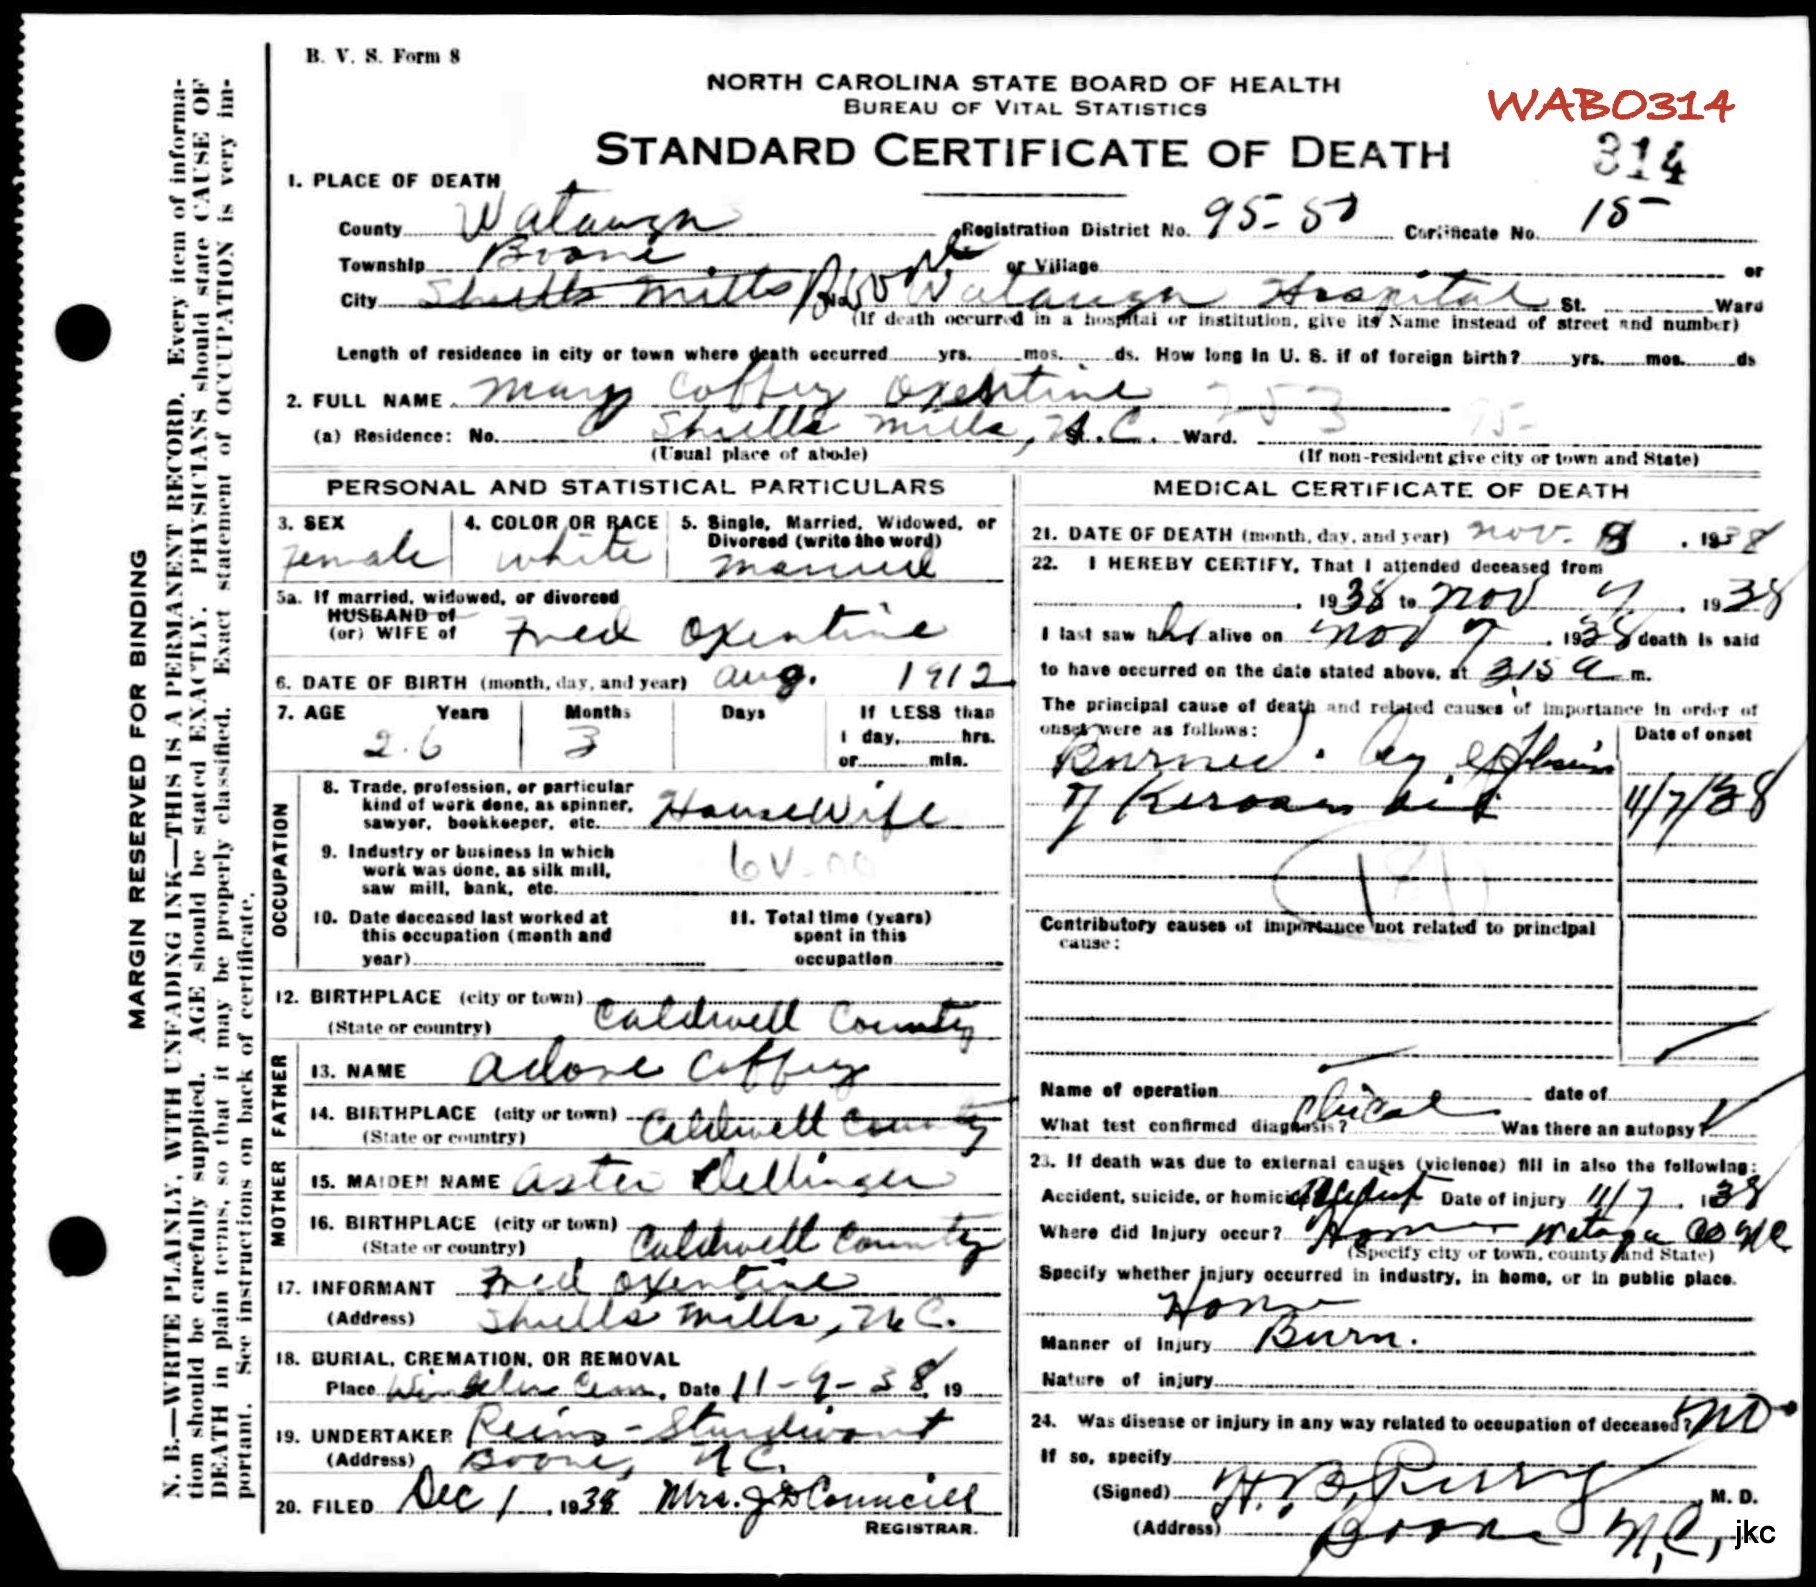 B. V. S. Form 8
NORTH CAROLINA STATE BOARD OF HEALTH
BUREAU OF VITAL STATISTICS
WABO314
STANDARD CERTIFICATE OF DEATH
314
1. PLACE OF DEATH
County Watauga Registration District No. 95-50 Certificate No. 15
Township Boone or Village or
City Shulls Mills Boone No. Watauga Hospital St. Ward
(If death occurred in a hospital or institution, give its Name instead of street and number)
Length of residence in city or town where death occurred yrs. mos. ds. How long in U. S. if of foreign birth? yrs. mos. ds
2. FULL NAME Mary Coffey Oxentine 253 95-
(a) Residence: No. Shulls Mills, N.C. Ward.
(Usual place of abode) (If non-resident give city or town and State)
PERSONAL AND STATISTICAL PARTICULARS
3. SEX 4. COLOR OR RACE 5. Single, Married, Widowed, or
Divorced (write the word)
Female White Married
5a. If married, widowed, or divorced
HUSBAND of
(or) WIFE of Fred Oxentine
6. DATE OF BIRTH (month, day, and year) Aug. 1912
7. AGE Years Months Days If LESS than
1 day, hrs.
26 3
or min.
OCCUPATION
8. Trade, profession, or particular
kind of work done, as spinner,
sawyer, bookkeeper, etc. HouseWife
9. Industry or business in which
work was done, as silk mill,
saw mill, bank, etc.
10. Date deceased last worked at
this occupation (month and
year)
11. Total time (years)
spent in this
occupation
12. BIRTHPLACE (city or town)
(State or country) Caldwell County
FATHER
13. NAME Adone Coffey
14. BIRTHPLACE (city or town)
(State or country) Caldwell County
MOTHER
15. MAIDEN NAME Aster Dellinger
16. BIRTHPLACE (city or town)
(State or country) Caldwell County
17. INFORMANT Fred Oxentine
(Address) Shulls Mills, N.C.
18. BURIAL, CREMATION, OR REMOVAL
Place Cem. Date 11-9-38 19
19. UNDERTAKER Reins-Sturdivant
(Address) Boone, N.C.
20. FILED Dec 1, 1938 Mrs. J D Councill
REGISTRAR.
MEDICAL CERTIFICATE OF DEATH
21. DATE OF DEATH (month, day, and year) Nov. 8, 1938
22. I HEREBY CERTIFY, That I attended deceased from
, 1938 to Nov 7, 1938
I last saw her alive on Nov 7, 1938 death is said
to have occurred on the date stated above, at 3:15 a m.
The principal cause of death and related causes of importance in order of
onset were as follows: Date of onset
Burned by
of Kerosene 11/7/38
Contributory causes of importance not related to principal
cause:
Name of operation date of
What test confirmed diagnosis? Clinical Was there an autopsy?
23. If death was due to external causes (violence) fill in also the following:
Accident, suicide, or homicide? Accident Date of injury 11/7, 1938
Where did injury occur? Home Wataga Co NC
(Specify city or town, county and State)
Specify whether injury occurred in industry, in home, or in public place.
Home
Manner of injury Burn.
Nature of injury
24. Was disease or injury in any way related to occupation of deceased? No
If so, specify
(Signed) H. B. Perry, M. D.
(Address) Boone N.C.,
jkc
MARGIN RESERVED FOR BINDING
N. B.—WRITE PLAINLY, WITH UNFADING INK—THIS IS A PERMANENT RECORD. Every item of informa-
tion should be carefully supplied. AGE should be stated EXACTLY. PHYSICIANS should state CAUSE OF
DEATH in plain terms, so that it may be properly classified. Exact statement of OCCUPATION is very im-
portant. See instructions on back of certificate.